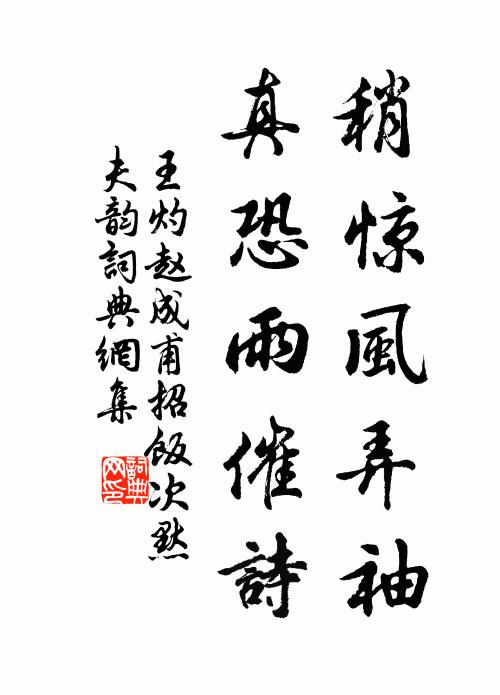 稍惊風弄袖
真恐雨催詩
王灼赵成甫招飯次黙
夫韵詞典網集
詞典网印